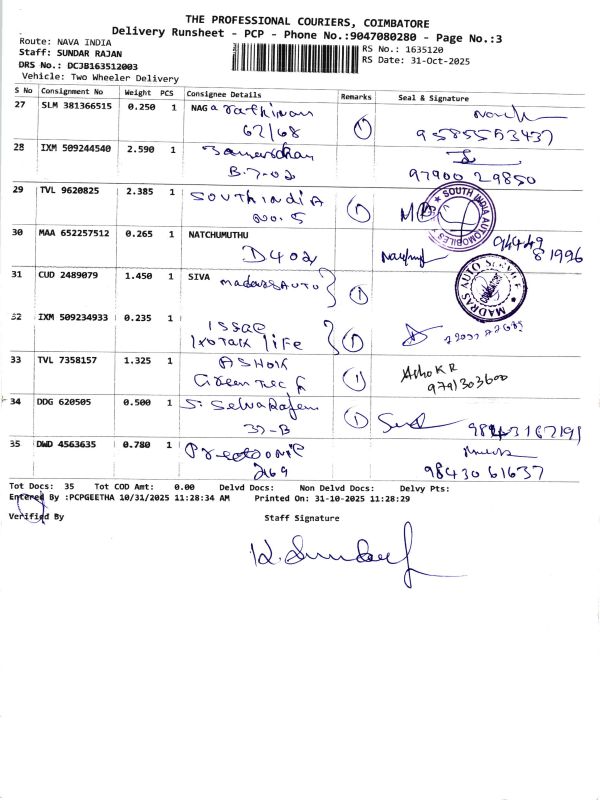 THE PROFESSIONAL COURIERS, COIMBATORE
Delivery Runsheet - PCP - Phone No.:9047080280 - Page No.:3
Route: NAVA INDIA
RS No.: 1635120
Staff: SUNDAR RAJAN
RS Date: 31-Oct-2025
DRS No.: DCJB163512003
Vehicle: Two Wheeler Delivery
S No Consignment No Weight PCS Consignee Details Remarks Seal & Signature
27 SLM 381366515 0.250 1 NAGa rathinam
62/68 1 9585553437
28 IXM 509244540 2.590 1
B-7-02 97900 29850
29 TVL 9620825 2.385 1 SOUTHINDIA
NO. 5 1
SOUTH INDIA AUTOMOBILES
30 MAA 652257512 0.265 1 NATCHUMUTHU 94449
D402 81996
31 CUD 2489079 1.450 1 SIVA madrasAUTO 1
MADRAS AUTO SERVICE
COIMBATORE
32 IXM 509234933 0.235 1 ISSAC
talk life 1
33 TVL 7358157 1.325 1 ASHOK Asho K R
Green Tec 1 9791303600
34 DDG 620505 0.500 1 S. SelvaRajan
37-B 1
35 DWD 4563635 0.780 1
269 98430 61637
Tot Docs: 35 Tot COD Amt: 0.00 Delvd Docs: Non Delvd Docs: Delvy Pts:
Entered By :PCPGEETHA 10/31/2025 11:28:34 AM Printed On: 31-10-2025 11:28:29
Verified By Staff Signature
K. Sundar